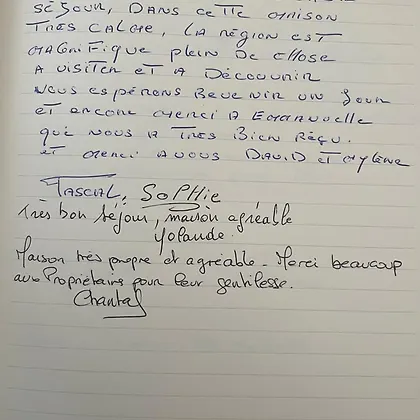 SÉJOUR, DANS CETTE MAISON
TRÈS CALME, LA RÉGION EST
MAGNIFIQUE PLEIN DE CHOSE
A VISITER ET A DÉCOUVRIR
NOUS ESPÉRONS REVENIR UN JOUR
ET ENCORE MERCI A EMMANUELLE
QUI NOUS A TRÈS BIEN REÇU.
ET MERCI A VOUS DAVID ET MYLÈNE
PASCAL, SOPHIE
Très bon séjour, maison agréable
Yolande.
Maison très propre et agréable - Merci beaucoup
aux Propriétaires pour leur gentillesse.
Chantal